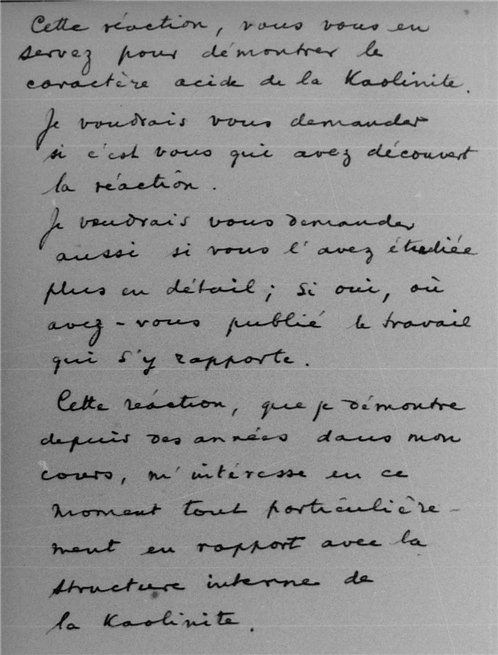 Cette réaction, vous vous en
servez pour démontrer le
caractère acide de la Kaolinite.
Je voudrais vous demander
si c'est vous qui avez découvert
la réaction.
Je voudrais vous demander
aussi si vous l'avez étudiée
plus en détail; si oui, où
avez-vous publié le travail
qui s'y rapporte.
Cette réaction, que je démontre
depuis des années dans mon
cours, m'intéresse en ce
moment tout particulière-
ment en rapport avec la
structure interne de
la Kaolinite.